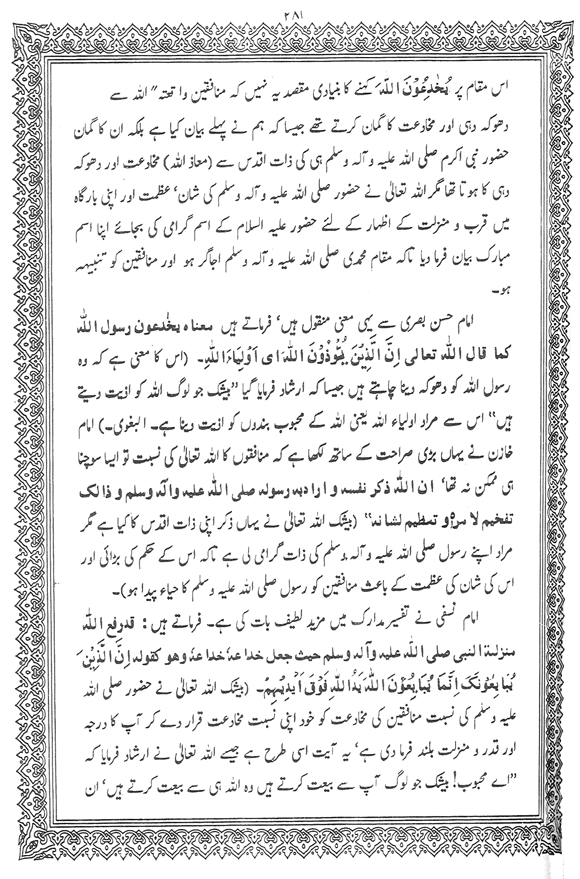 ٢٨١
اس مقام پر يُخٰدِعُوْنَ اللّٰهَ کہنے کا بنیادی مقصد یہ نہیں کہ منافقین واقعتہ" اللہ سے
دھوکہ دہی اور مخادعت کا گمان کرتے تھے جیسا کہ ہم نے پہلے بیان کیا ہے بلکہ ان کا گمان
حضور نبی اکرم صلی اللہ علیہ و آلہ وسلم ہی کی ذات اقدس سے (معاذ اللہ) مخادعت اور دھوکہ
دہی کا ہوتا تھا مگر اللہ تعالیٰ نے حضور صلی اللہ علیہ وسلم کی شان' عظمت اور اپنی بارگاہ
میں قرب و منزلت کے اظہار کے لئے حضور علیہ السلام کے اسم گرامی کی بجائے اپنا اسم
مبارک بیان فرما دیا تاکہ مقام محمدی صلی اللہ علیہ و آلہ وسلم اجاگر ہو اور منافقین کو تنبیہہ
ہو۔
امام حسن بصری سے یہی معنی منقول ہیں' فرماتے ہیں معناه يخٰدعون رسول اللّٰه
كما قال اللّٰه تعالى اِنَّ الَّذِيْنَ يُؤْذُوْنَ اللّٰهَ اى اَوْلِيَاءَ اللّٰهِ۔ (اس کا معنی ہے کہ وہ
رسول اللہ کو دھوکہ دینا چاہتے ہیں جیسا کہ ارشاد فرمایا گیا "بیشک جو لوگ اللہ کو اذیت دیتے
ہیں" اس سے مراد اولیاء اللہ یعنی اللہ کے محبوب بندوں کو اذیت دینا ہے۔ البغوی۔) امام
خازن نے یہاں بڑی صراحت کے ساتھ لکھا ہے کہ منافقوں کا اللہ تعالیٰ کی نسبت تو ایسا سوچنا
ہی ممکن نہ تھا' ان اللّٰه ذكر نفسه و اراد به رسوله صلى اللّٰه عليه وآله وسلم و ذالك
تفخيم لامره و تعظيم لشانه" (بیشک اللہ تعالیٰ نے یہاں ذکر اپنی ذات اقدس کا کیا ہے مگر
مراد اپنے رسول صلی اللہ علیہ و آلہ وسلم کی ذات گرامی لی ہے تاکہ اس کے حکم کی بڑائی اور
اس کی شان کی عظمت کے باعث منافقین کو رسول صلی اللہ علیہ وسلم کا حیاء پیدا ہو)۔
امام نسفی نے تفسیر مدارک میں مزید لطیف بات کی ہے۔ فرماتے ہیں: قد رفع اللّٰه
منزلة النبى صلى اللّٰه عليه وآله وسلم حيث جعل خداعه خداعه وهو كقوله اِنَّ الَّذِيْنَ
يُبَايِعُوْنَكَ اِنَّمَا يُبَايِعُوْنَ اللّٰهَ يَدُ اللّٰهِ فَوْقَ اَيْدِيْهِمْ۔ (بیشک اللہ تعالیٰ نے حضور صلی اللہ
علیہ وسلم کی نسبت منافقین کی مخادعت کو خود اپنی نسبت مخادعت قرار دے کر آپ کا درجہ
اور قدر و منزلت بلند فرما دی ہے' یہ آیت اسی طرح ہے جیسے اللہ تعالیٰ نے ارشاد فرمایا کہ
"اے محبوب! بیشک جو لوگ آپ سے بیعت کرتے ہیں وہ اللہ ہی سے بیعت کرتے ہیں' ان